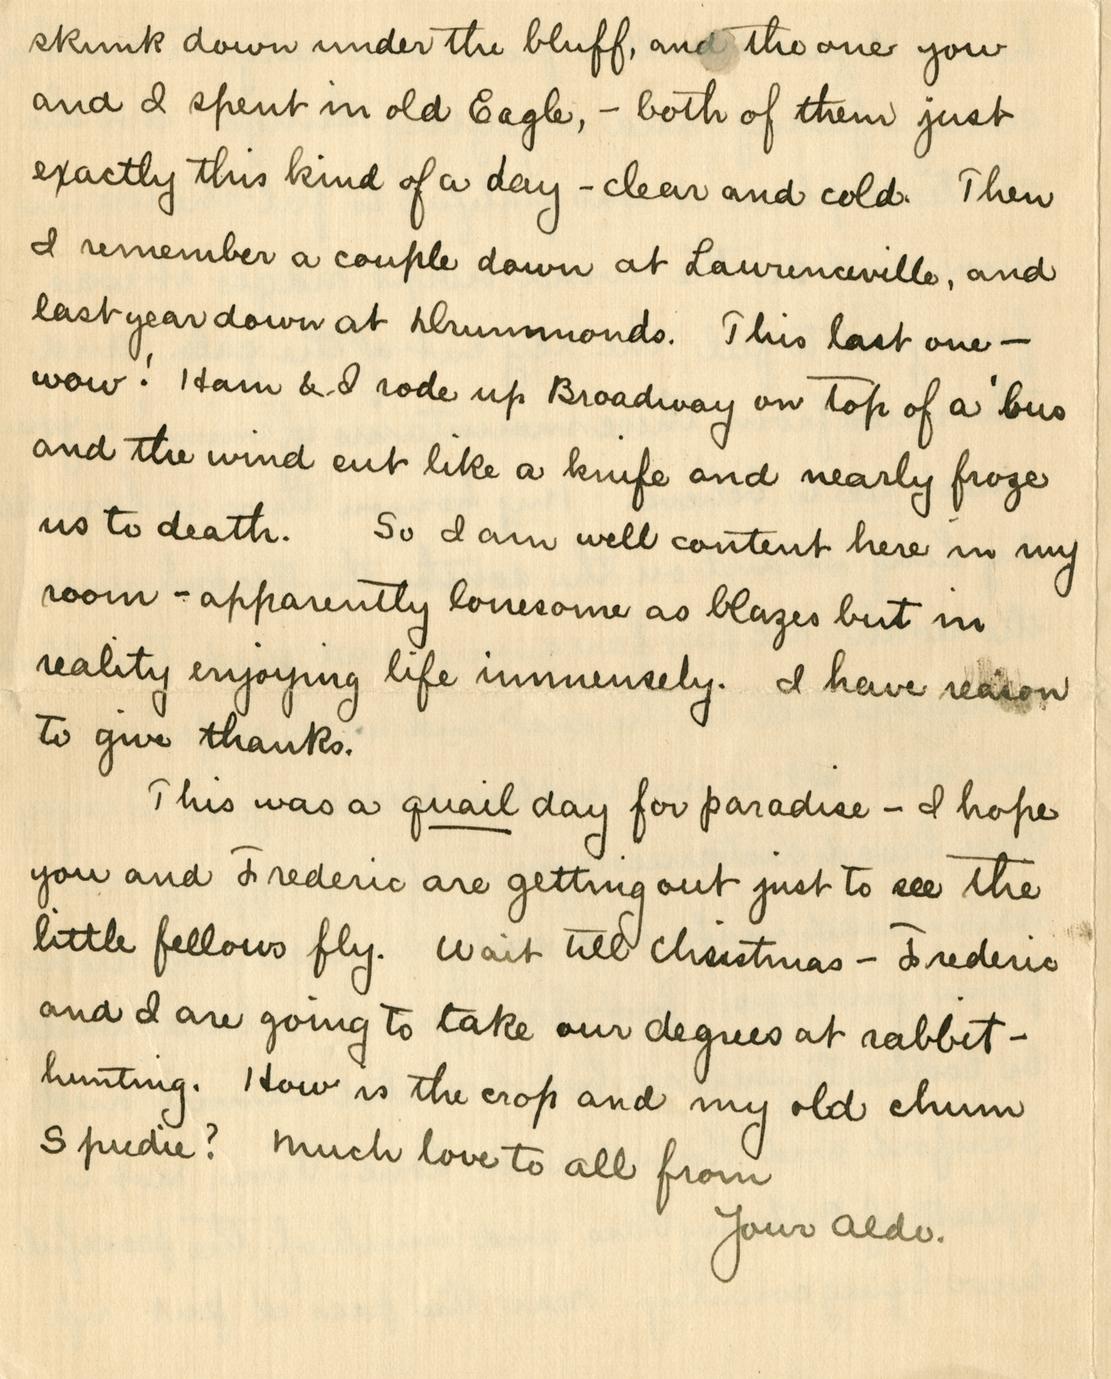 skunk down under the bluff, and the one you
and I spent in old Eagle, – both of them just
exactly this kind of a day – clear and cold. Then
I remember a couple down at Lawrenceville, and
last year down at Drummonds. This last one –
wow! Ham & I rode up Broadway on top of a 'bus
and the wind cut like a knife and nearly froze
us to death. So I am well content here in my
room – apparently lonesome as blazes but in
reality enjoying life immensely. I have reason
to give thanks.
This was a quail day for paradise – I hope
you and Frederic are getting out just to see the
little fellows fly. Wait till Christmas – Frederic
and I are going to take our degrees at rabbit-
hunting. How is the crop and my old chum
Spudie? Much love to all from
Your Aldo.